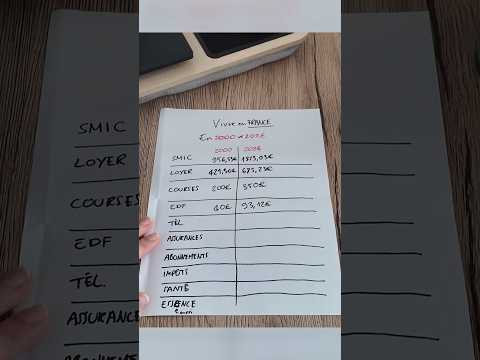 Vivre en FRANCE
En 2000 et 202
2000 202
SMIC
LOYER 675,23€
COURSES 200€ 350€
EDF 60€ 93,12€
TÉL
ASSURANCES
ABONNEMENTS
IMPÔTS
SANTÉ
ESSENCE
SMIC
LOYER
COURSES
EDF
TÉL.
ASSURANCES